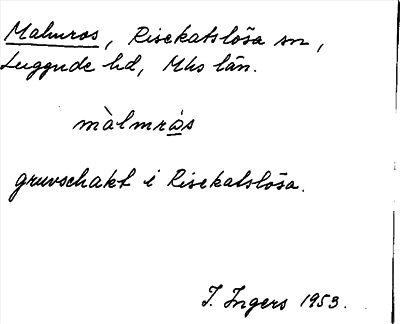 Malmros, Risekatslösa sn,
Luggude hd, Mhs län.
màlmrọs
gruvschakt i Risekatslösa.
I. Ingers 1953.